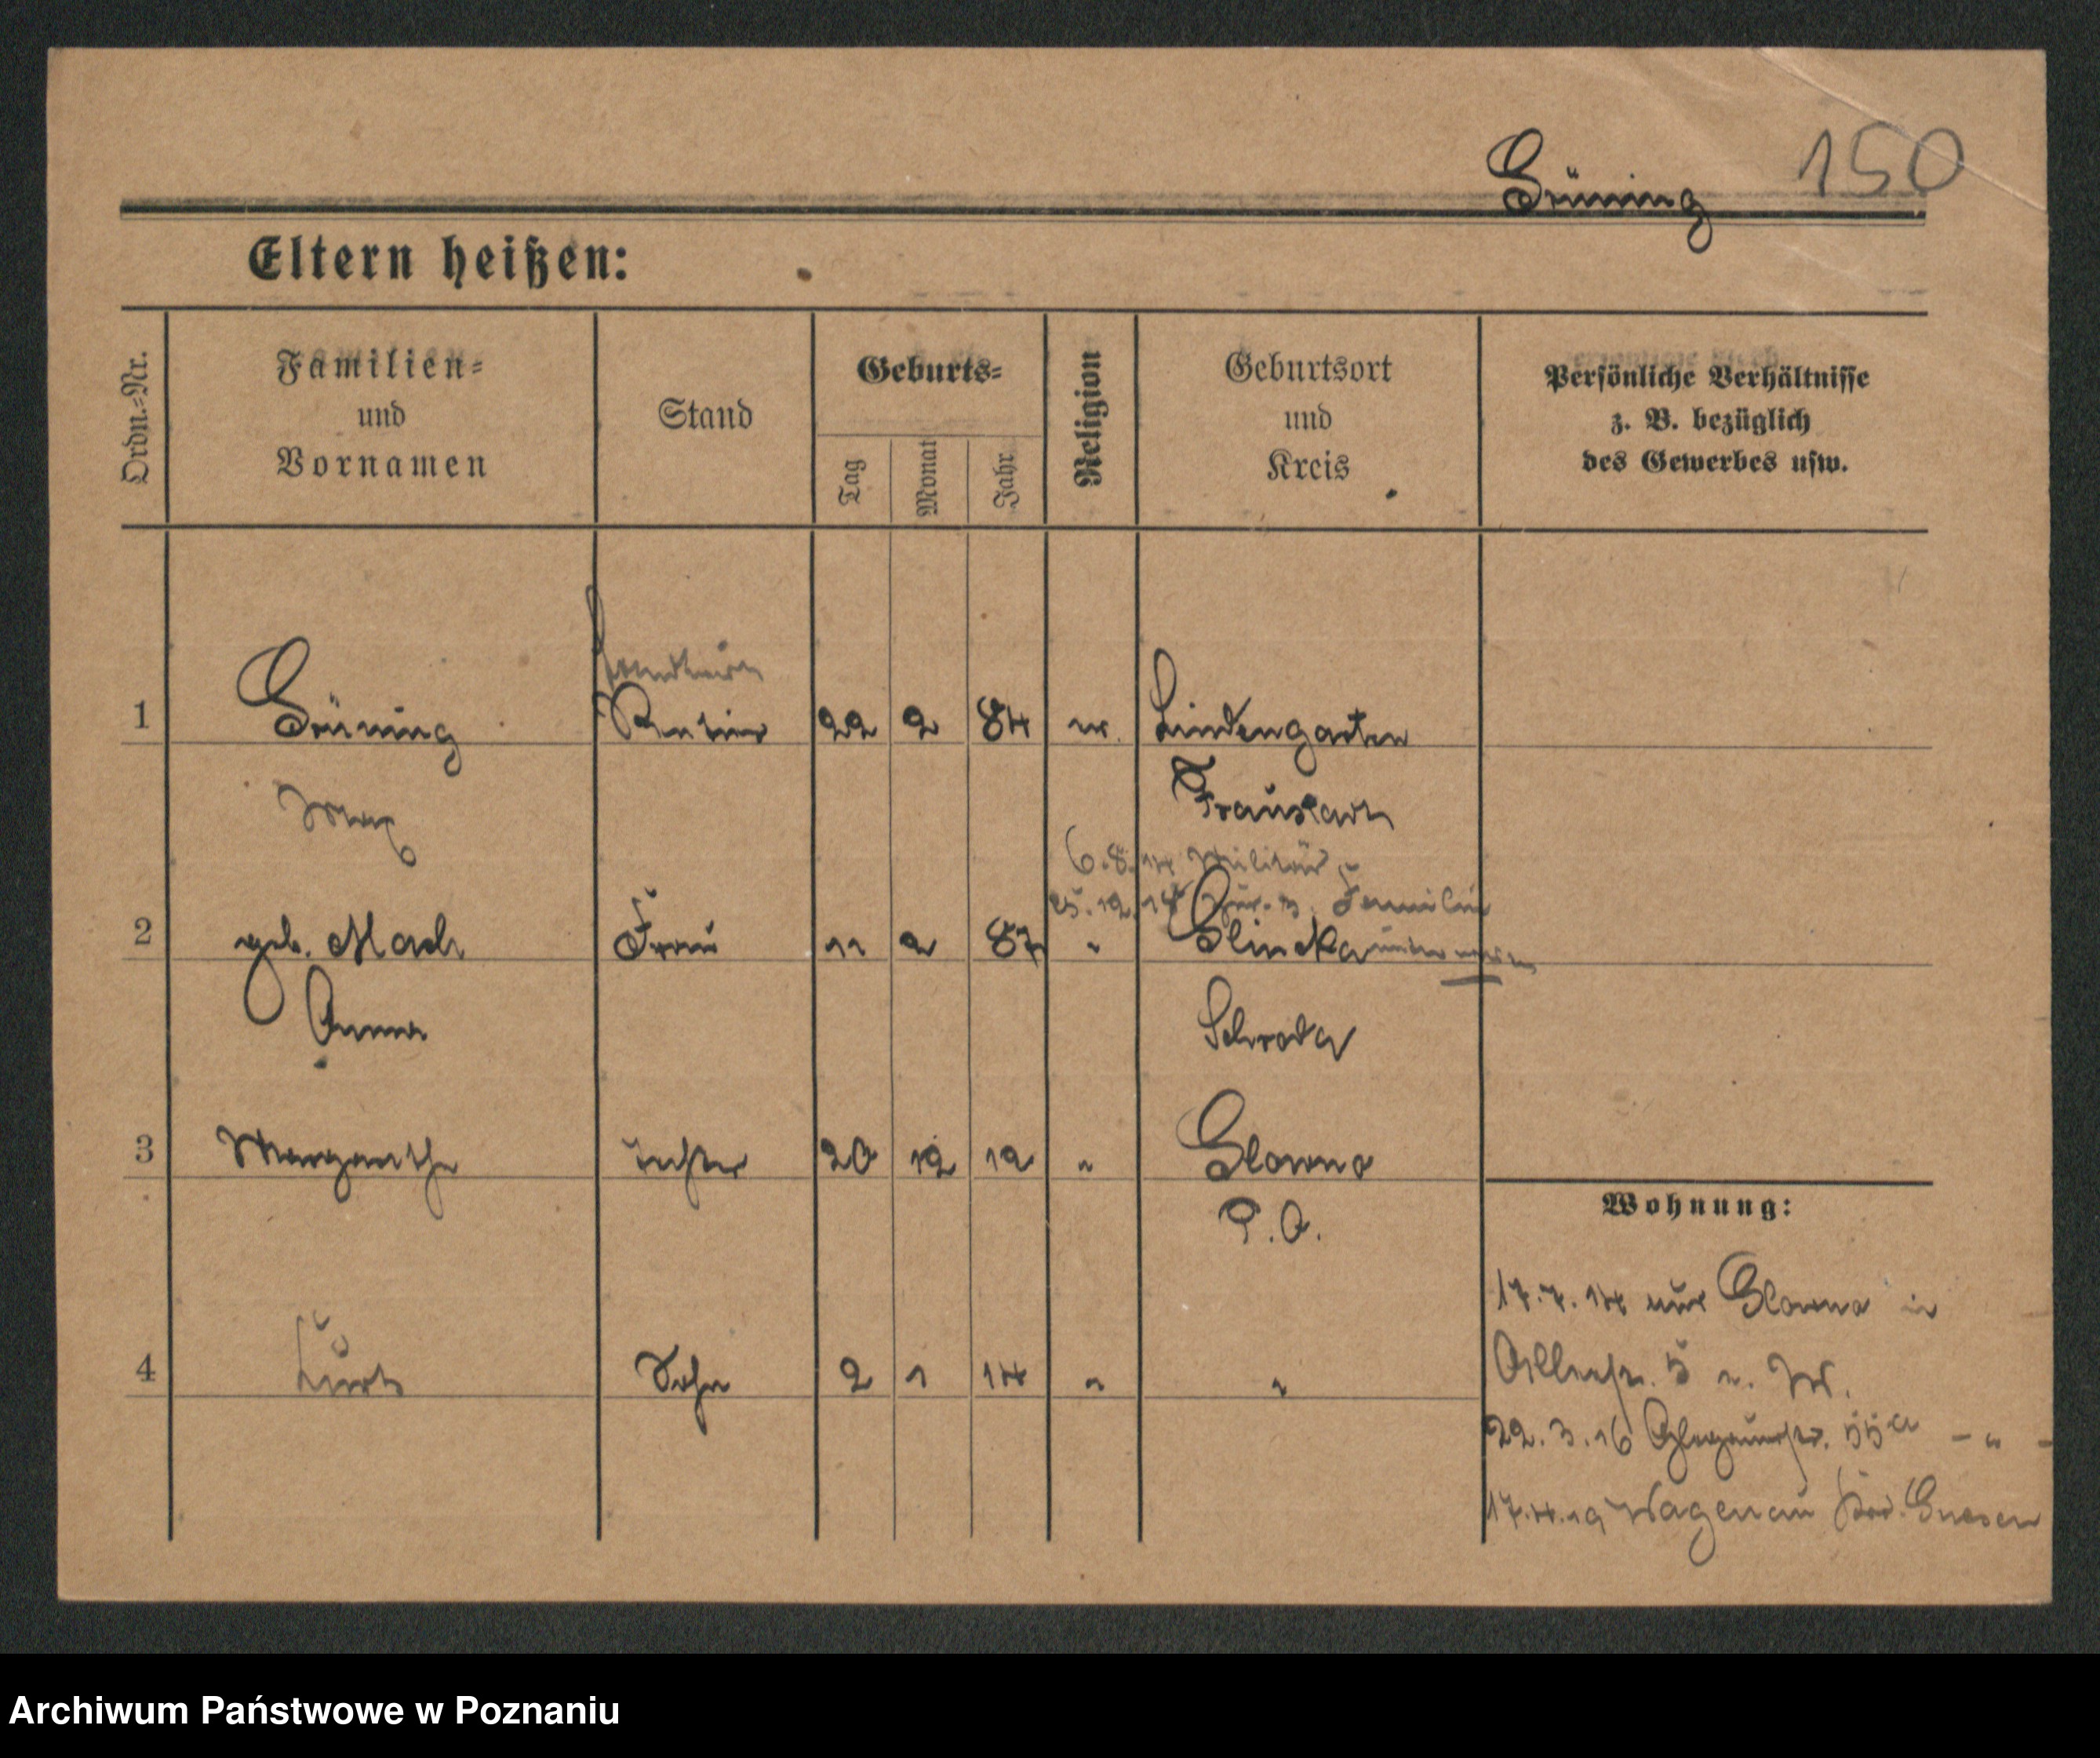 Grüning 150
Eltern heißen:
Ordn.-Nr.
Familien-
und
Vornamen
Stand
Geburts-
Tag
Monat
Jahr
Religion
Geburtsort
und
Kreis
Persönliche Verhältnisse
z. B. bezüglich
des Gewerbes usw.
1 Grüning 22 2 84 Lindengarten
Max Fraustadt
6.8.14 Militär
25.12.14 Familie
2 geb. Mach Frau 11 2 87 " Glinka
Anna Schroda
3 Margarethe Tochter 20 12 12 " Glowno
P. O.
Wohnung:
17.7.14 aus Glowno in
4 Kurt Sohn 2 1 14 " "
5 n. W.
22.3.16 55a - " -
17.4.19 Wagenau Gnesen
Archiwum Państwowe w Poznaniu